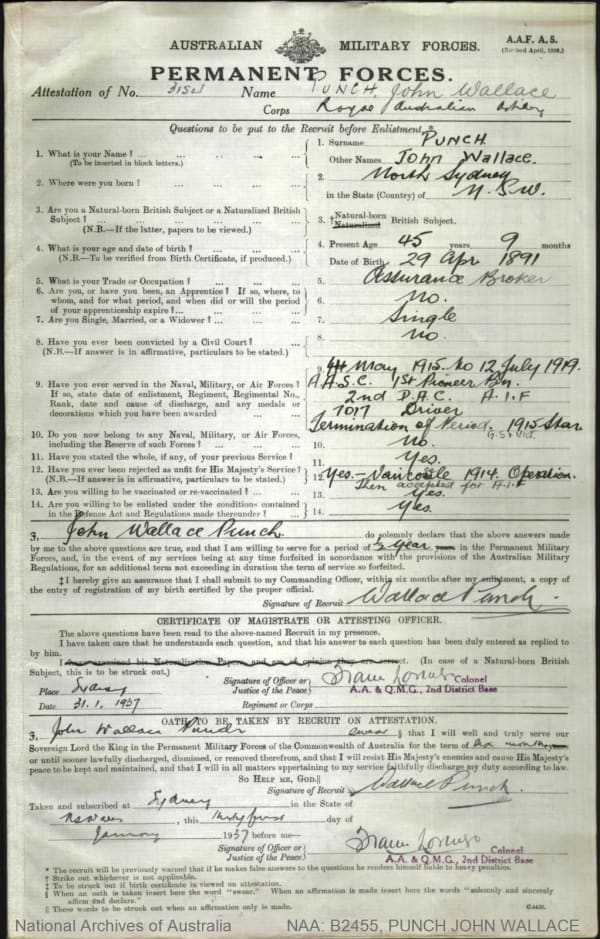 A.A.F. A. 5.
AUSTRALIAN MILITARY FORCES.
PERMANENT FORCES.
Attestation of No. Name PUNCH, John Wallace
Corps Royal Australian Artillery
Questions to be put to the Recruit before Enlistment.*
1. What is your Name? ... ... ... ...
(To be inserted in block letters.)
1. Surname PUNCH.
Other Names John Wallace.
2. Where were you born? ... ... ... ...
2. North Sydney
in the State (Country) of N.S.W.
3. Are you a Natural-born British Subject or a Naturalized British
Subject? ... ... ... ... ... ...
(N.B.—If the latter, papers to be viewed.)
3. †Natural-born
Naturalized British Subject.
4. What is your age and date of birth? ... ... ...
(N.B.—To be verified from Birth Certificate, if produced.)
4. Present Age 45 years 9 months
Date of Birth 29 Apr 1891
5. What is your Trade or Occupation? ... ... ...
5. Assurance Broker
6. Are you, or have you been, an Apprentice? If so, where, to
whom, and for what period, and when did or will the period
of your apprenticeship expire? ... ... ... ...
6. No.
7. Are you Single, Married, or a Widower? ... ... ...
7. Single
8. Have you ever been convicted by a Civil Court? ... ...
(N.B.—If answer is in affirmative, particulars to be stated.)
8. No.
9. Have you ever served in the Naval, Military, or Air Forces?
If so, state date of enlistment, Regiment, Regimental No.,
Rank, date and cause of discharge, and any medals or
decorations which you have been awarded ... ...
9. May 1915. to 12 July 1919.
A.A.S.C. 1st Pioneer Bn.
2nd D.A.C. A.I.F
7017 Driver
Termination of Period. 1915 Star
10. Do you now belong to any Naval, Military, or Air Forces,
including the Reserve of such Forces? ... ... ...
10. No.
11. Have you stated the whole, if any, of your previous Service?
11. Yes.
12. Have you ever been rejected as unfit for His Majesty's Service?
(N.B.—If answer is in affirmative, particulars to be stated.)
12. Yes.—Varicocele 1914. Operation.
Then accepted for A.I.F
13. Are you willing to be vaccinated or re-vaccinated? ... ...
13. Yes.
14. Are you willing to be enlisted under the conditions contained
in the Defence Act and Regulations made thereunder? ... ...
14. Yes.
I, John Wallace Punch. do solemnly declare that the above answers made
by me to the above questions are true, and that I am willing to serve for a period of ½ year in the Permanent Military
Forces, and, in the event of my services being at any time forfeited in accordance with the provisions of the Australian Military
Regulations, for an additional term not exceeding in duration the term of service so forfeited.
‡I hereby give an assurance that I shall submit to my Commanding Officer, within six months after my enlistment, a copy of
the entry of registration of my birth certified by the proper official.
Signature of Recruit Wallace Punch.
CERTIFICATE OF MAGISTRATE OR ATTESTING OFFICER.
The above questions have been read to the above-named Recruit in my presence.
I have taken care that he understands each question, and that his answer to each question has been duly entered as replied to
by him.
I have examined his Naturalization Papers, and am of opinion they are correct. (In case of a Natural-born British
Subject, this is to be struck out.)
Signature of Officer or
Justice of the Peace
Colonel
A.A. & Q.M.G., 2nd District Base
Place Sydney
Date 31.1.1937
Regiment or Corps
OATH TO BE TAKEN BY RECRUIT ON ATTESTATION.
I, John Wallace Punch swear § that I will well and truly serve our
Sovereign Lord the King in the Permanent Military Forces of the Commonwealth of Australia for the term of six months
or until sooner lawfully discharged, dismissed, or removed therefrom, and that I will resist His Majesty's enemies and cause His Majesty's
peace to be kept and maintained, and that I will in all matters appertaining to my service faithfully discharge my duty according to law.
SO HELP ME, GOD.||
Signature of Recruit Wallace Punch.
Taken and subscribed at Sydney in the State of
, this thirty first day of
January 1937 before me—
Signature of Officer or
Justice of the Peace
Colonel
A.A. & Q.M.G., 2nd District Base
* The recruit will be previously warned that if he makes false answers to the questions he renders himself liable to heavy penalties.
† Strike out whichever is not applicable.
‡ To be struck out if birth certificate is viewed on attestation.
§ When an oath is taken insert here the word "swear." When an affirmation is made insert here the words "solemnly and sincerely
affirm and declare."
|| These words to be struck out when an affirmation only is made.
National Archives of Australia
NAA: B2455, PUNCH JOHN WALLACE